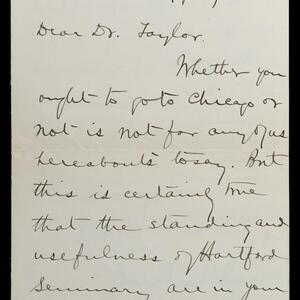 Dear Dr. Taylor.
Whether you
ought to go to Chicago or
not is not for any of us
hereabouts to say. But
this is certainly true
that the standing and
usefulness of Hartford
Seminary are in your